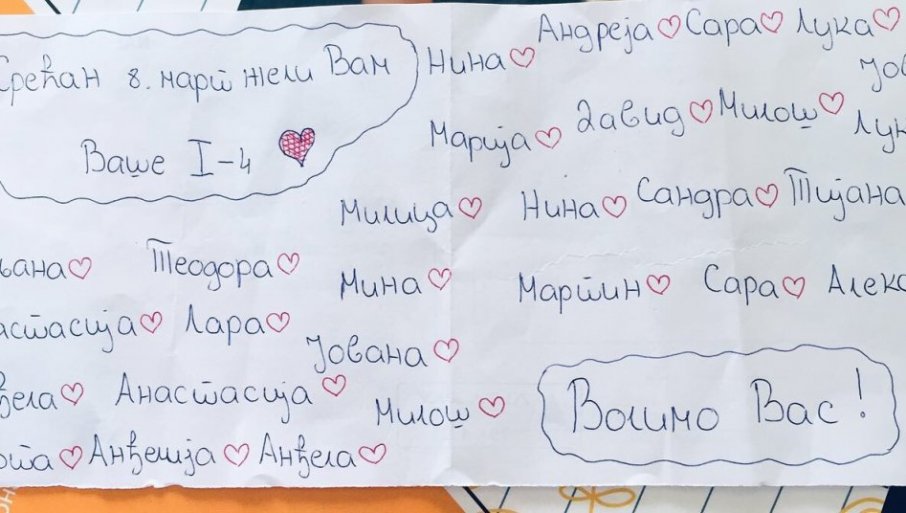 Срећан 8. март жели Вам
Ваше I-4
Андреја Сара Лука
Нина
Марија Давид Милош
Милица Нина Сандра Тијана
Теодора Мина Мартин Сара
Лара
Јована
Анастасија
Милош
Анђелија Анђела
Волимо Вас!